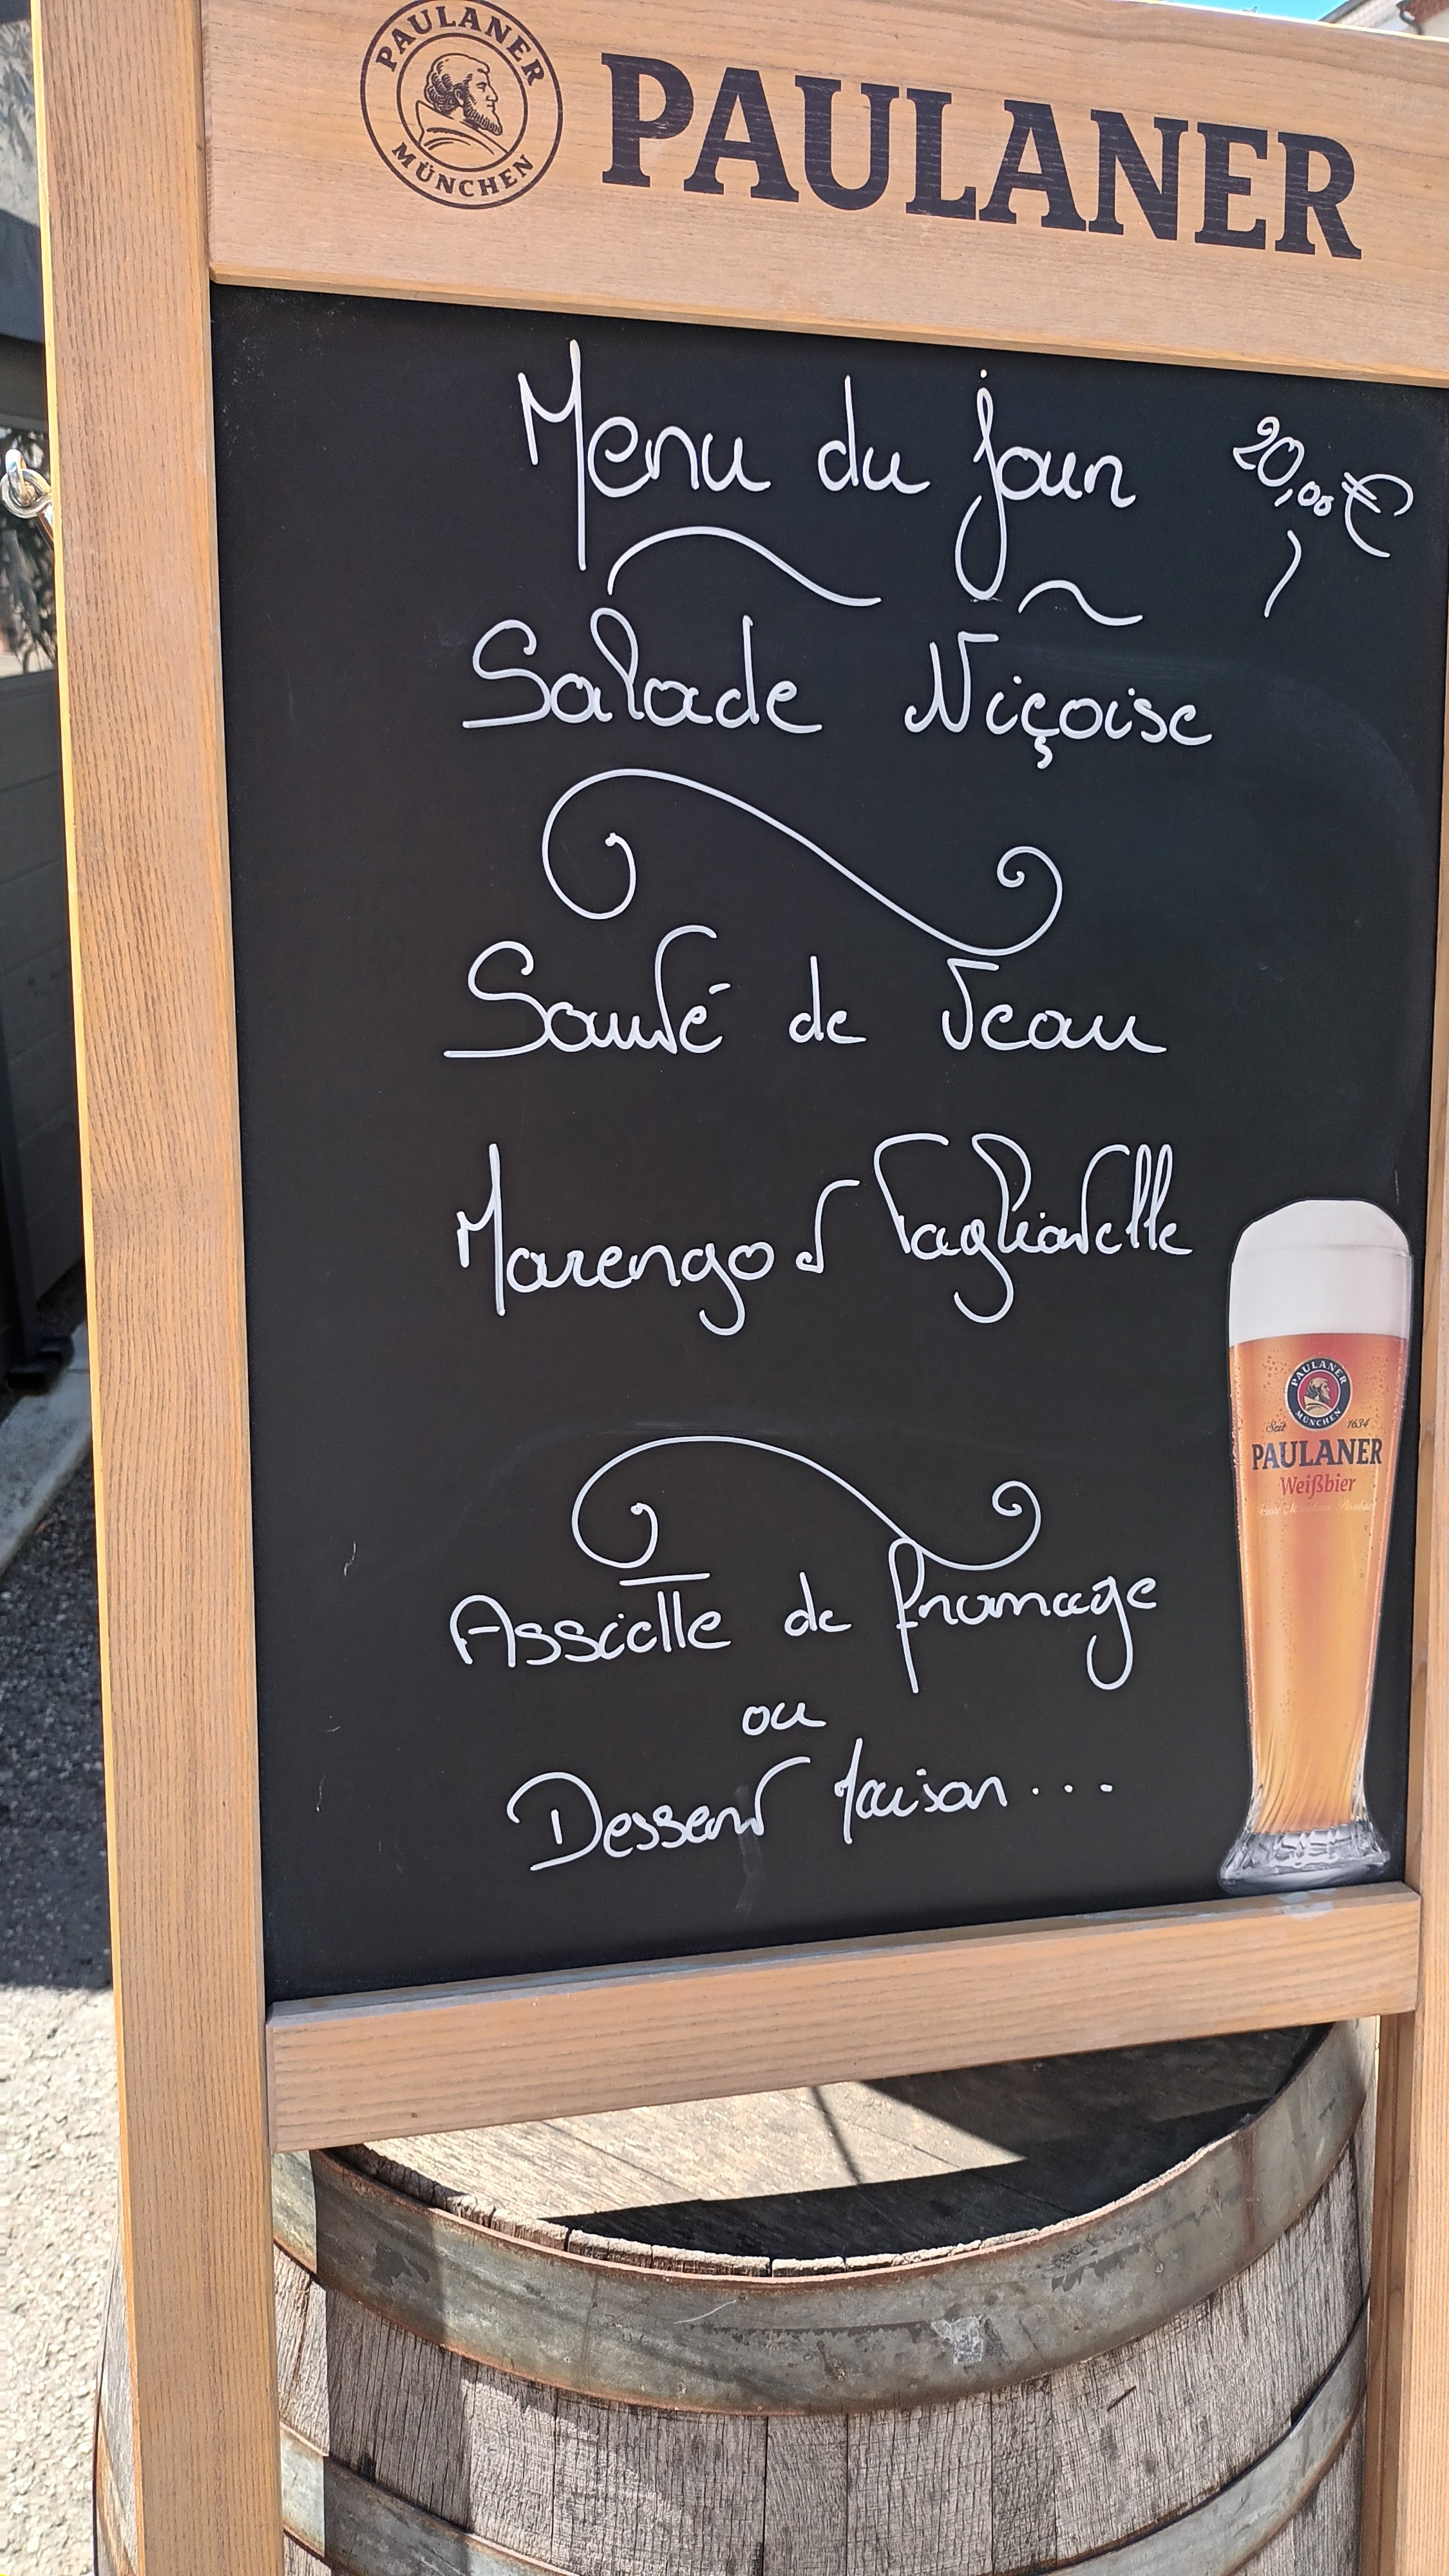 PAULANER
MÜNCHEN
PAULANER
Menu du jour 20,00€
Salade Niçoise
Sauté de Veau
Marengo & Tagliatelle
Assiette de fromage
ou
Dessert Maison...
PAULANER
MÜNCHEN
Seit 1634
PAULANER
Weißbier